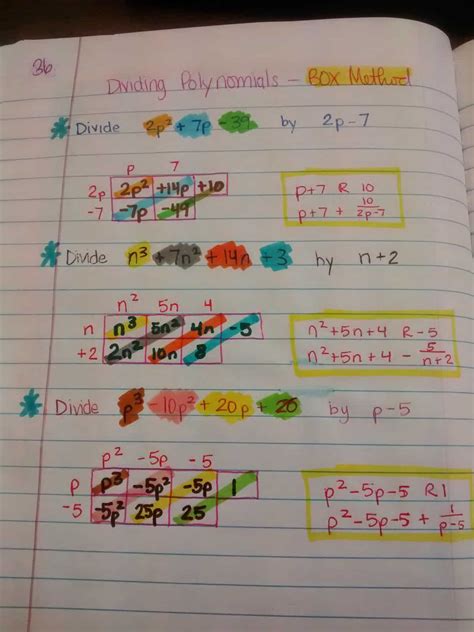 36
Dividing Polynomials - BOX Method
* Divide 2p² + 7p - 39 by 2p-7
p 7
2p 2p² +14p +10
-7 -7p -49
p+7 R 10
p+7 + 10/2p-7
* Divide n³ + 7n² + 14n + 3 by n+2
n² 5n 4
n n³ 5n² 4n -5
+2 2n² 10n 8
n²+5n+4 R-5
n²+5n+4 - 5/n+2
* Divide p³ -10p² + 20p + 26 by p-5
p² -5p -5
p p³ -5p² -5p 1
-5 -5p² 25p 25
p²-5p-5 R1
p²-5p-5 + 1/p-5